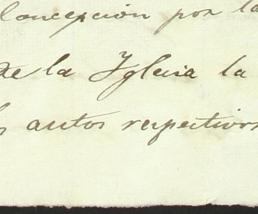 Concepción por la
de la Yglesia la
autos respectivos